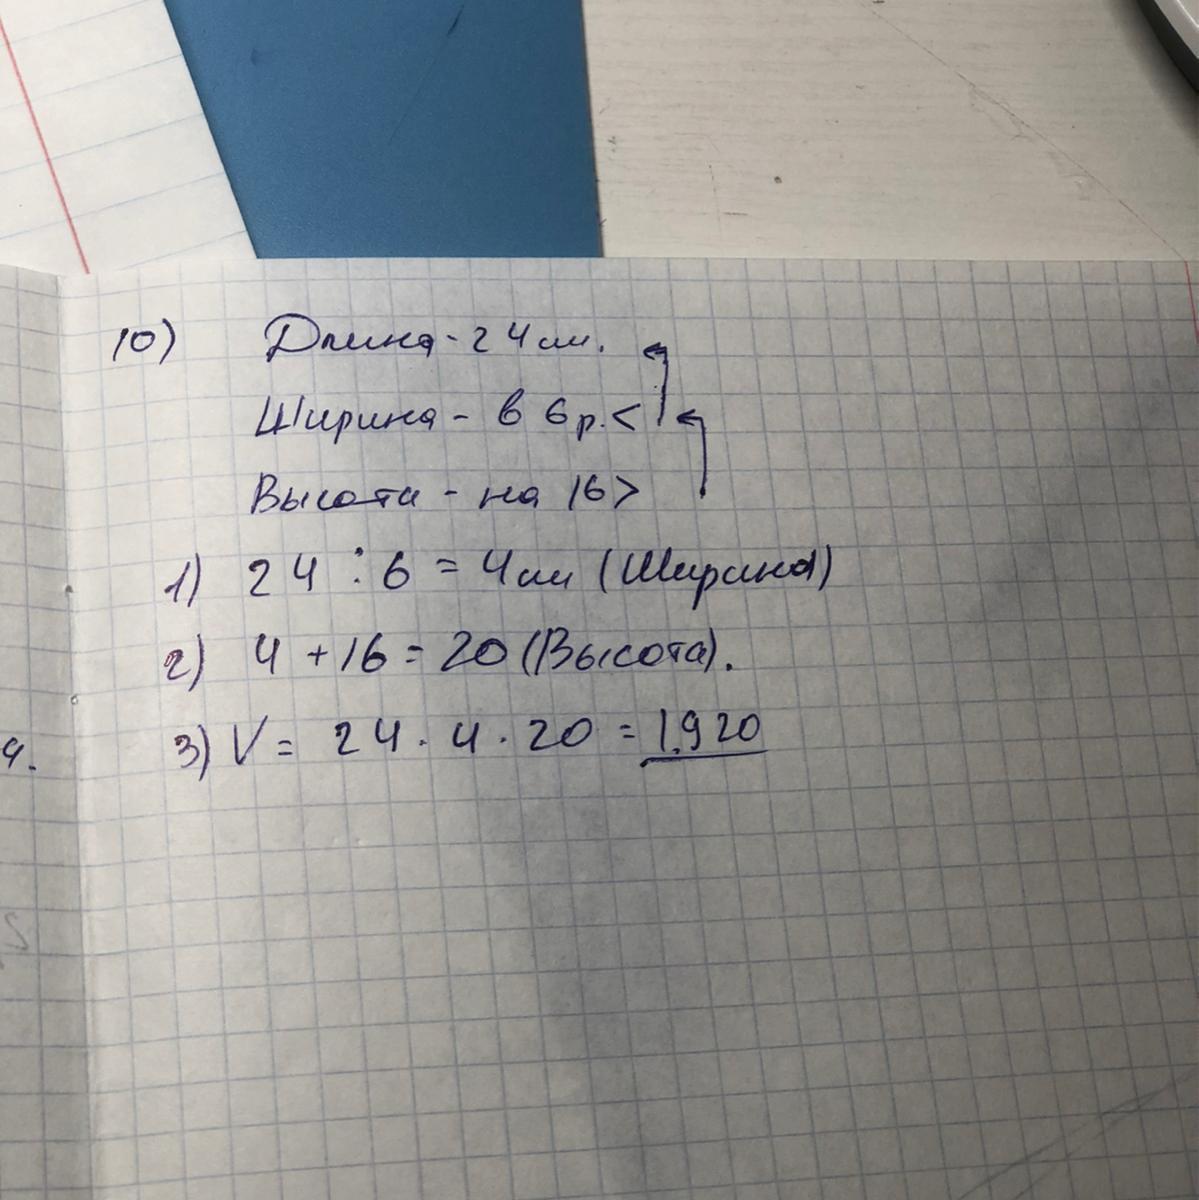 10) Длина - 24 см.
Ширина - в 6 р. <
Высота - на 16 >
1) 24 : 6 = 4 см (Ширина)
2) 4 + 16 = 20 (Высота).
3) V = 24 · 4 · 20 = 1.920
4.